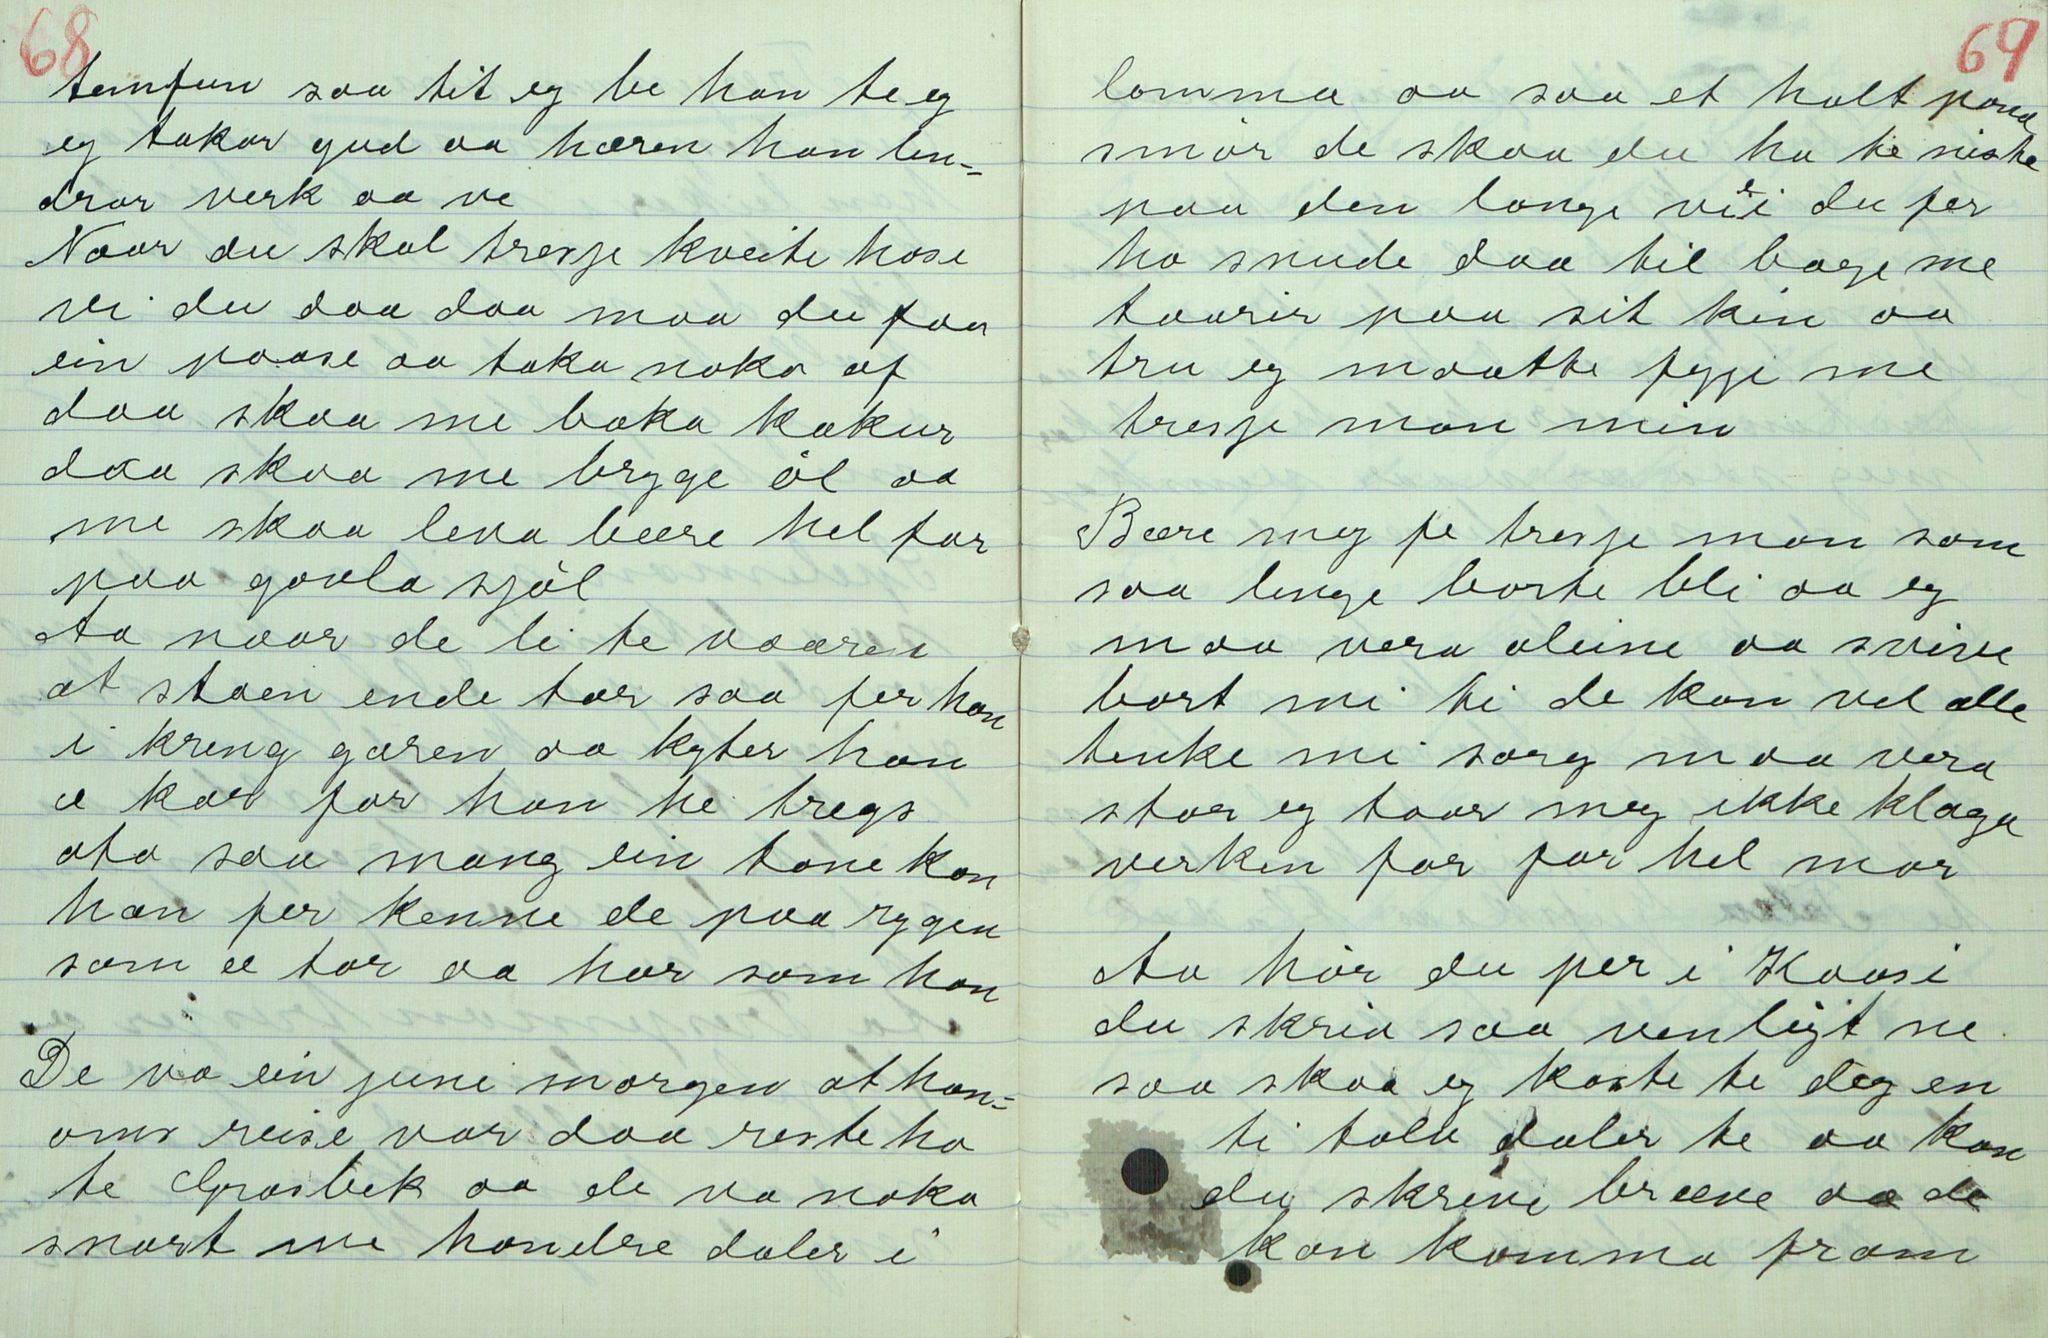 68
temfun saa tit eg be han te eg
eg takar gud aa hæren han len=
drar verk aa ve
Naar du skal tresje kveite hose
vi du daa daa maa du faa
ein paase aa taka naka af
daa skaa me baka kakur
daa skaa me bryge øl aa
me skaa leva bære hel far
paa gaula sjøl
Aa naar de li te vaaren
at staen ende tar saa fer han
i kreng garen aa kyter han
æ kar for han he tregs
ata saa mang ein tone kan
han fer kenne de paa rygen
som æ tar aa har som han
De va ein juni morgen at han=
oms reise var daa reste ha
te Grasbek aa de va naka
snart me handre daler i
69
lomma aa saa et halt pond
smør de skaa du ha te niste
paa den lange veei du fer
ho snude daa til bage me
taarir paa sit kin aa
tru eg maatte fygje me
tresje man min
Bære meg fe tresje man som
saa lenge borte bli aa eg
maa vera aleine aa svive
bort mi ti de kan vel alle
tenke mi sorg maa vera
stor eg taar meg ikke klaga
verken for far hel mor
Aa hør du per i Haasi
du skria saa venligt ne
saa skaa eg kaste te deg en
ti talu daler te aa kan
du skreve bræve aa de
kan komma fram